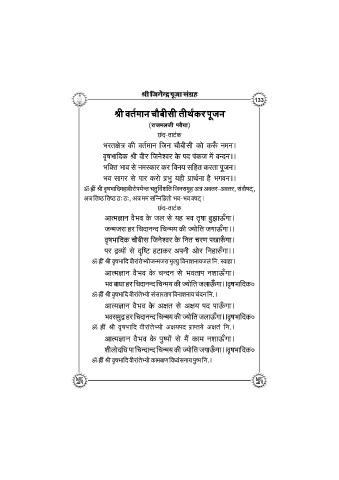 श्री जिनेन्द्र पूजा संग्रह
133
श्री वर्तमान चौबीसी तीर्थंकर पूजन
(राजमलजी पवैया)
छंद-ताटंक
भरतक्षेत्र की वर्तमान जिन चौबीसी को करूँ नमन।
वृषभादिक श्री वीर जिनेश्वर के पद पंकज में वन्दन।।
भक्ति भाव से नमस्कार कर विनय सहित करता पूजन।
भव सागर से पार करो प्रभु यही प्रार्थना है भगवन।।
ॐ ह्रीं श्री वृषभादिमहावीरपर्यन्त चतुर्विंशति जिनसमूह अत्र अवतर-अवतर, संवौषट्,
अत्र तिष्ठ तिष्ठ ठः ठः, अत्र मम सन्निहितो भव-भव वषट्।
छंद-ताटंक
आत्मज्ञान वैभव के जल से यह भव तृषा बुझाऊँगा।
जन्मजरा हर चिदानन्द चिन्मय की ज्योति जगाऊँगा।।
वृषभादिक चौबीस जिनेश्वर के नित चरण पखारूँगा।
पर द्रव्यों से दृष्टि हटाकर अपनी ओर निहारूँगा।।
ॐ ह्रीं श्री वृषभादि वीरांतेभ्यो जन्मजरा मृत्यु विनाशनाय जलं नि. स्वाहा।
आत्मज्ञान वैभव के चन्दन से भवताप नशाऊँगा।
भव बाधा हर चिदानन्द चिन्मय की ज्योति जलाऊँगा।।वृषभादिक०
ॐ ह्रीं श्री वृषभादि वीरांतेभ्यो संसारताप विनाशनाय चंदनं नि.।
आत्मज्ञान वैभव के अक्षत से अक्षय पद पाऊँगा।
भवसमुद्र हर चिदानन्द चिन्मय की ज्योति जलाऊँगा।।वृषभादिक०
ॐ ह्रीं श्री वृषभादि वीरांतेभ्यो अक्षयपद प्राप्तये अक्षतं नि.।
आत्मज्ञान वैभव के पुष्पों से मैं काम नशाऊँगा।
शीलोदधि पा चिदानन्द चिन्मय की ज्योति जगाऊँगा।।वृषभादिक०
ॐ ह्रीं श्री वृषभादि वीरांतेभ्यो कामबाण विध्वंसनाय पुष्पं नि.।